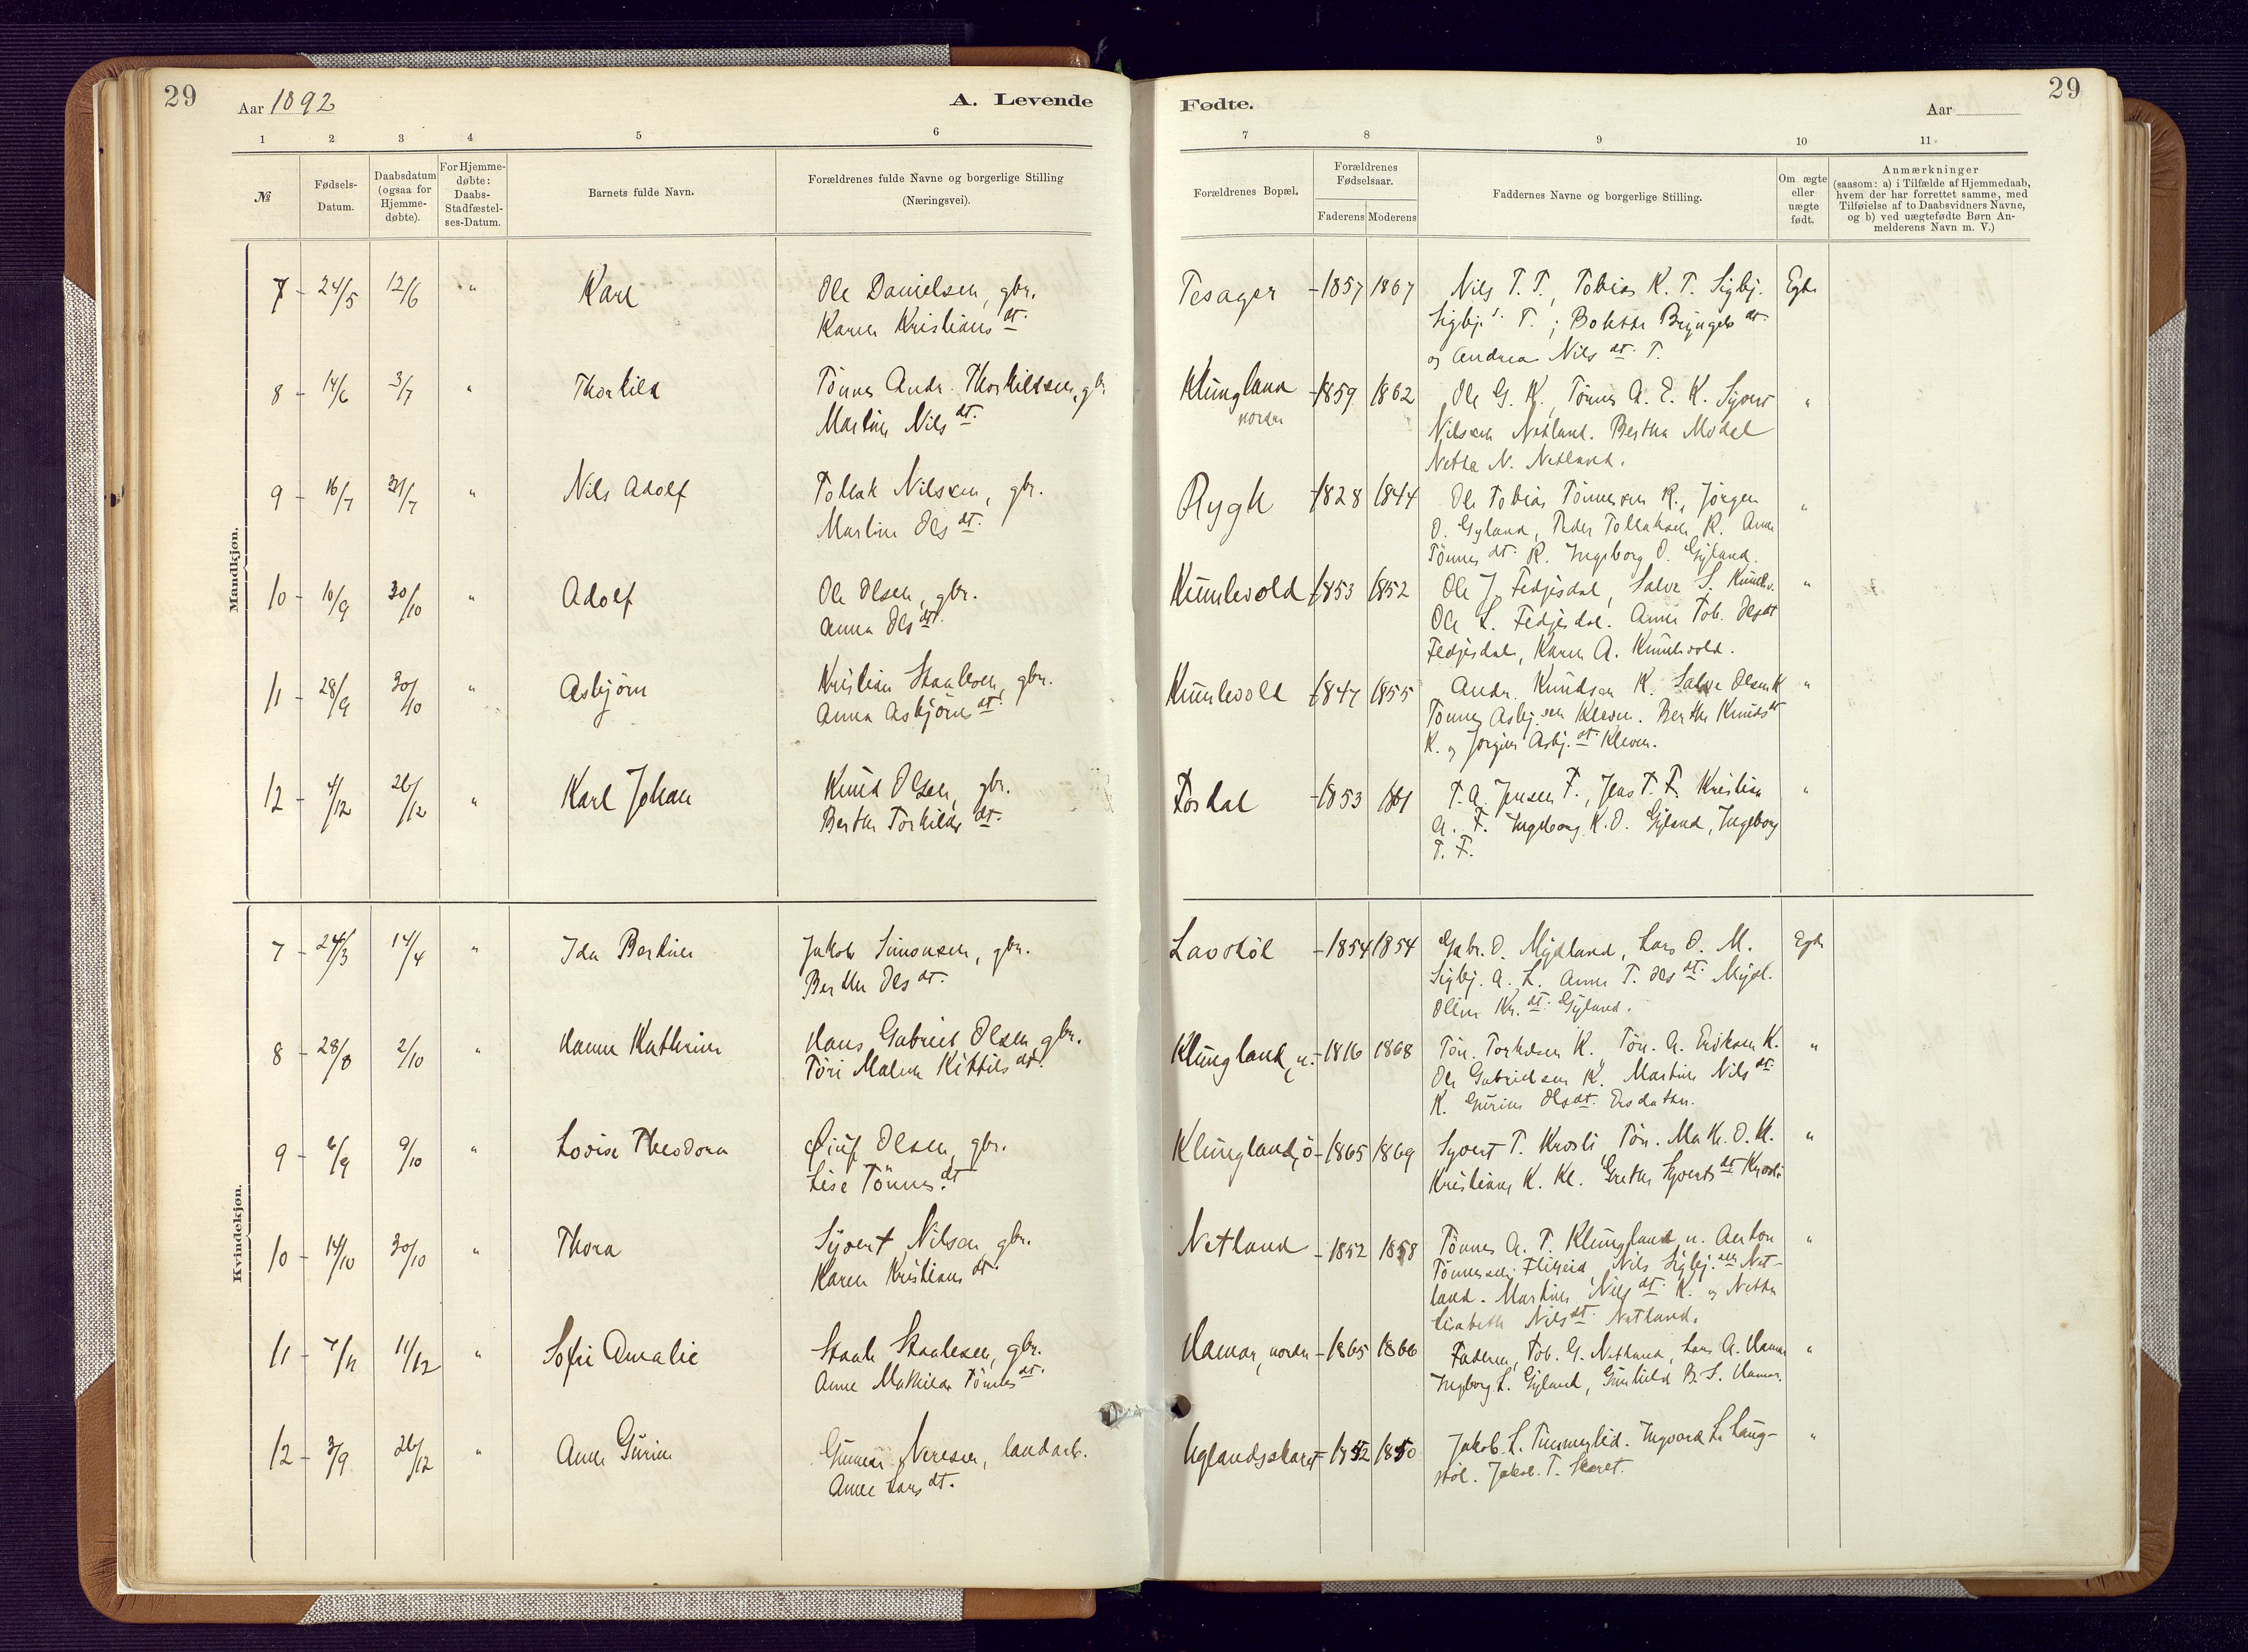 29
Aar 1892
A. Levende
1 2 3 4 5 6
№
Fødsels-
Datum.
Daabsdatum
(ogsaa for
Hjemme-
døbte).
For Hjemme-
døbte:
Daabs-
Stadfæstel-
ses-Datum.
Barnets fulde Navn.
Forældrenes fulde Navne og borgerlige Stilling
(Næringsvei).
Mandkjøn.
7 - 24/5 12/6 " Karl Ole Danielsen, gbr.
Karen Kristians dt.
8 - 14/6 3/7 " Thorkild Tønnes Andr. Thorkildsen, gbr.
Martine Nils dt.
9 - 16/7 31/7 " Nils Adolf Tollak Nilssen, gbr.
Martine Ols dt.
10 - 10/9 30/10 " Adolf Ole Olsen, gbr.
Anna Ols dt.
11 - 28/9 30/10 " Asbjørn Kristian Staalesen, gbr.
Anna Asbjørns dt.
12 - 4/12 26/12 " Karl Johan Knud Olsen, gbr.
Berthe Torkilds dt.
Kvindekjøn.
7 - 24/3 14/4 " Ida Bertine Jakob Simonsen, gbr.
Berthe Ols dt.
8 - 28/8 2/10 " Hanne Kathrine Hans Gabriel Olsen gbr.
Töri Malene Kittils dt.
9 - 6/9 9/10 " Lovise Theodora Olsen, gbr.
Lise Tönnes dt
10 - 14/10 30/10 " Thora Sijvert Nilsen, gbr.
Karen Kristians dt.
11 - 7/11 11/12 " Sofie Amalie Staale Staalesen, gbr.
Anne Mathilde Tönnes dt.
12 - 3/9 26/12 " Anne Gurine Gunnar landarb.
Anne Lars dt.
Fødte.
Aar
29
7 8 9 10 11
Forældrenes Bopæl.
Forældrenes
Fødselsaar.
Faderens Moderens
Faddernes Navne og borgerlige Stilling.
Om ægte
eller
uægte
født.
Anmærkninger
(saasom: a) i Tilfælde af Hjemmedaab,
hvem der har forrettet samme, med
Tilføielse af to Daabsvidners Navne,
og b) ved uægtefødte Børn An-
melderens Navn m. V.)
Tesager - 1857 1867 Nils T. T., Tobias K. T. Sigbj. Egte
Sigbj. s. T.; Bolette Bryngels dt.
og Andrea Nils dt. T.
Klungland - 1859 1862 Ole G. K., Tönnes A. E. K. Sijvert "
nordre
Nilssen Netland. Bertha Modal
Netta N. Netland.
Rygh - 1828 1844 Ole Tobias Tönnesen R., Jörgen "
O. Gyland, Peder Tollaksen R. Anne
Tönnes dt. R. Ingeborg O. Gyland.
Kumlevold - 1853 1852 Ole J. Fedjedal, Salve S. Kumlev. "
Ole L. Fedjedal. Anne Tob. Olsdt
Fedjedal, Karen A. Kumlevold.
Kumlevold - 1847 1855 Andr. Knudsen K. Salve Olsen K "
Tönnes Asbj.sen Kleven. Berthe Knuds dt
K. og Jörgine Asbj. dt Kleven.
Fosdal - 1853 T. A. Jensen F., Jens T. F. Kristian "
A. F. Ingeborg K. O. Gyland, Ingeborg
T. F.
Lavstöl - 1854 1854 Gabr. O. Mydland, Lars O. M. Egte
Sigbj. A. L. Anne T. Ols dt. Mydl.
Oline Kr. dt. Gyland.
Klungland, n. - 1816 1868 Tön. Torkelsen K. Tön. A. Eriksen K. "
Ole Gabrielsen K. Martine Nils dt.
K. Gurine Olsdt. Ersdalen.
Klungland, ö - 1865 1869 Syvert T. Krosli, Tön. O. K. "
Kristiane K. Kl. Grethe Syverts dt Krosli
Netland - 1852 1858 Tönnes A. T. Klungland n. Anton "
Tönnessen Flikeid, Nils Sigbj.sen Net-
land. Martine Nils dt. K. og Netta
Lisabeth Nils dt. Netland.
Hamar, nordre - 1865 1866 Faderen, Tob. G. Netland, Lars A. Hamar "
Ingborg L. Gyland, Gunhild B. S. Hamar.
Uglandsskaret - 1852 1850 Jakob L. Ingvard L. Laug- "
stöl. Jakob T. Skaret.